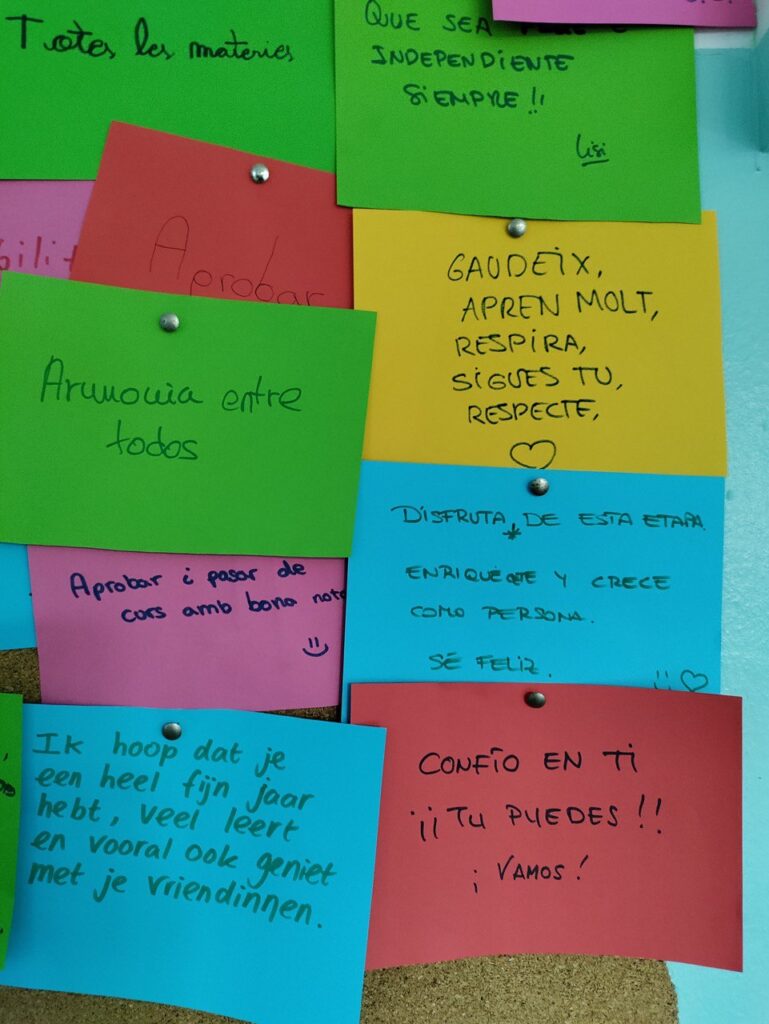 Totes les materies
QUE SEA
INDEPENDIENTE
SIEMPRE!!
lisi
bilit
Aprobar
GAUDEIX,
APREN MOLT,
RESPIRA,
SIGUES TU,
RESPECTE,
Armonia entre
todos
DISFRUTA DE ESTA ETAPA.
ENRIQUÉCETE Y CRECE
COMO PERSONA.
SÉ FELIZ.
Aprobar i pasar de
curs amb bona nota
Ik hoop dat je
een heel fijn jaar
hebt, veel leert
en vooral ook geniet
met je vriendinnen.
CONFÍO EN TI
¡¡TU PUEDES!!
¡VAMOS!